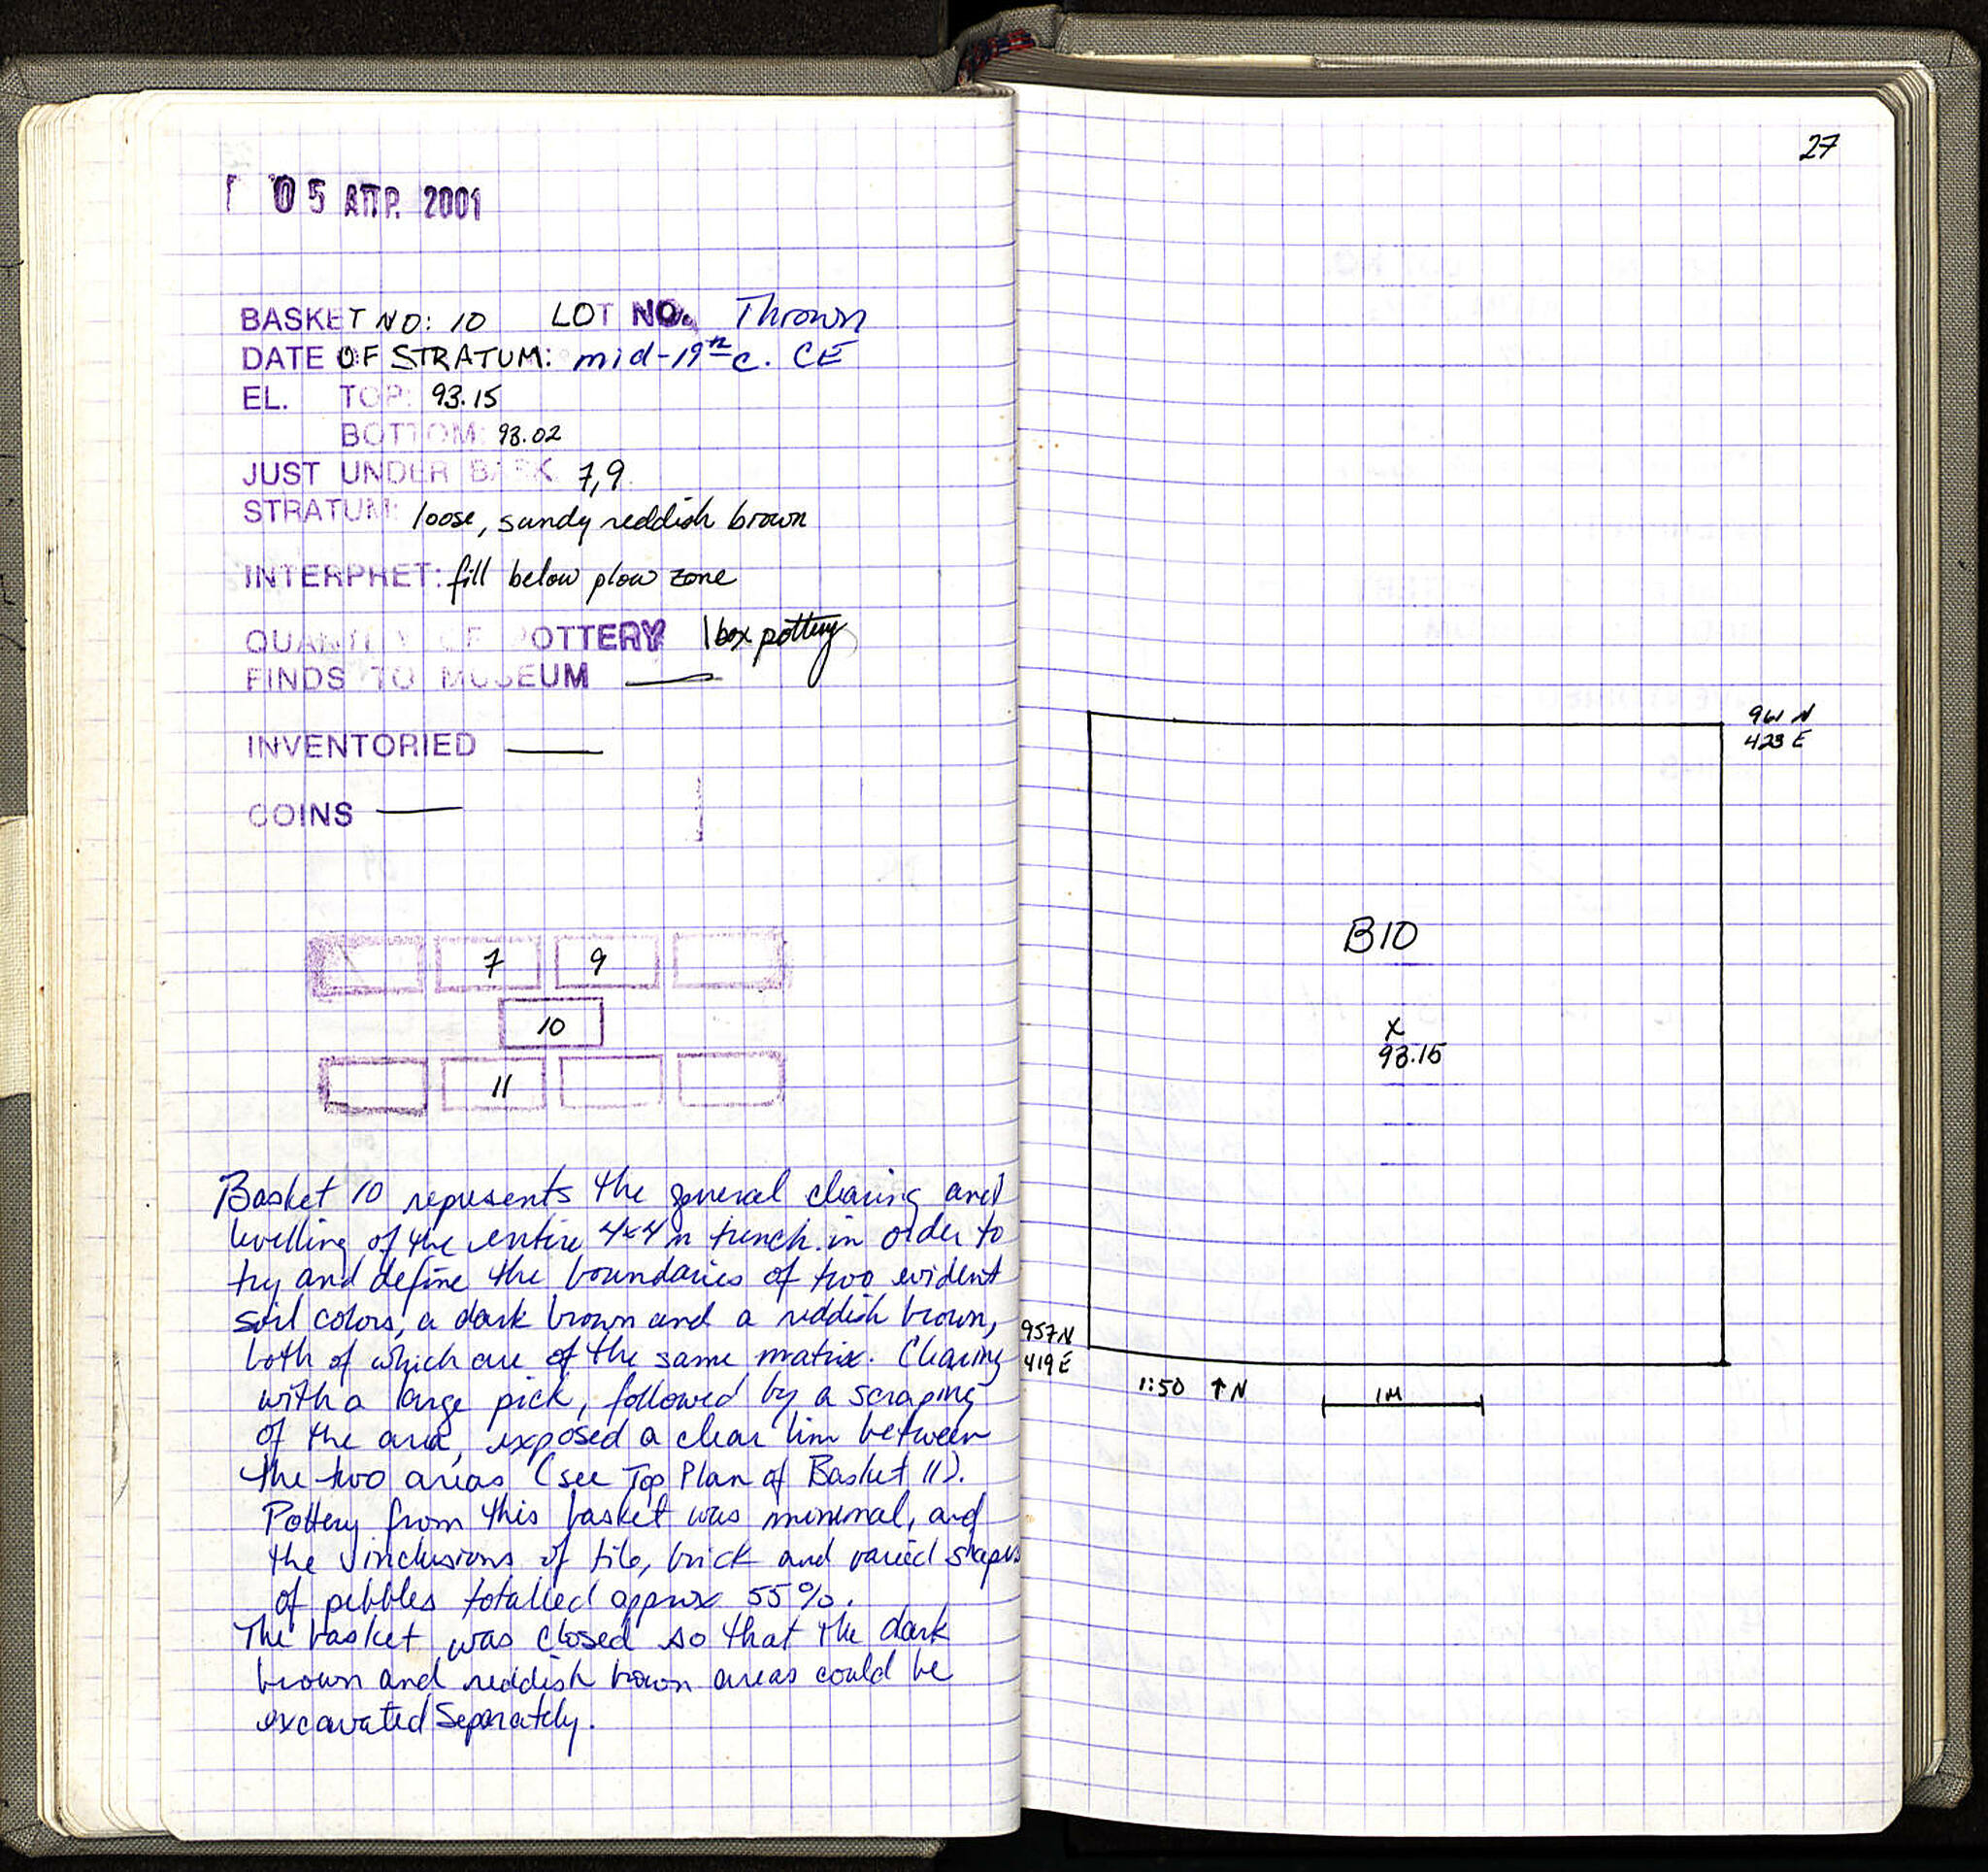 05 ΑΠΡ. 2001
BASKET NO: 10 LOT NO. Thrown
DATE OF STRATUM: mid-19th c. CE
EL. TOP: 93.15
BOTTOM: 93.02
JUST UNDER BASK 7,9
STRATUM: loose, sandy reddish brown
INTERPRET: fill below plow zone
QUANTITY OF POTTERY 1 box pottery
FINDS TO MUSEUM —
INVENTORIED —
COINS —
7 9
10
11
Basket 10 represents the general clearing and
levelling of the entire 4x4m trench in order to
try and define the boundaries of two evident
soil colors, a dark brown and a reddish brown,
both of which are of the same matrix. Clearing
with a large pick, followed by a scraping
of the area, exposed a clear line between
the two areas (see Top Plan of Basket 11).
Pottery from this basket was minimal, and
the inclusions of tile, brick and varied shapes
of pebbles totalled approx 55%.
The basket was closed so that the dark
brown and reddish brown areas could be
excavated separately.
27
961 N
423 E
B10
x
93.15
957 N
419 E
1:50 ↑ N 1M